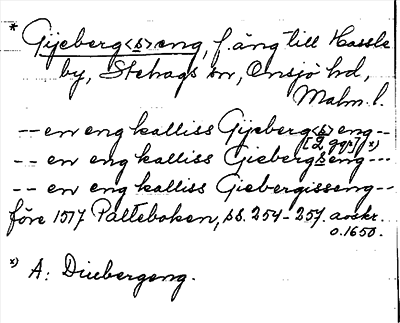 * Gijeberg<s>eng, f. äng till Hassle
by, Stehags sn, Onsjö hd,
Malm. l.
-- en eng kalliss Gijeberg<s>eng --
[2 ggr] x)
-- en eng kalliss Giebergseng ---
-- en eng kalliss Giebergisseng --
före 1517 Palteboken, ss. 254-257. avskr.
o. 1650.
x) A: Diebergeng.